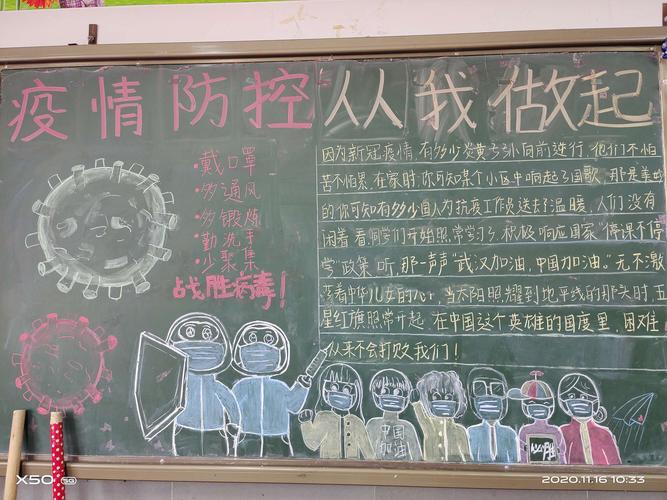 疫情防控 从我做起
·戴口罩
·多通风
·多锻炼
·勤洗手
·少聚集
战胜病毒!
因为新冠疫情,有多少炎黄
向前进行,他们不怕
苦不怕累,在家时,你可知某个小区中响起了国歌,那是
的你可知有多少国人为抗疫工作
送去了温暖,人们没有
闲着,看,同学们开始照常学习了,积极响应国家"停课不停
学"政策,听,那一声声"武汉加油,中国加油。"无不激
荡着中华儿女的心,当太阳照耀到地平线的那头时,五
星红旗照常升起,在中国这个英雄的国度里,困难
从来不会打败我们!
中国
加油
X50 5G
2020.11.16 10:33